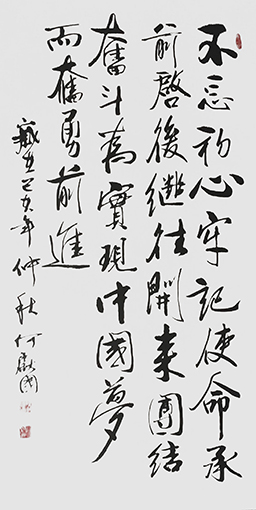 不忘初心牢記使命承
前啓後繼往開来團结
奮斗為實現中國夢
而奮勇前進
歲在己亥年仲秋何